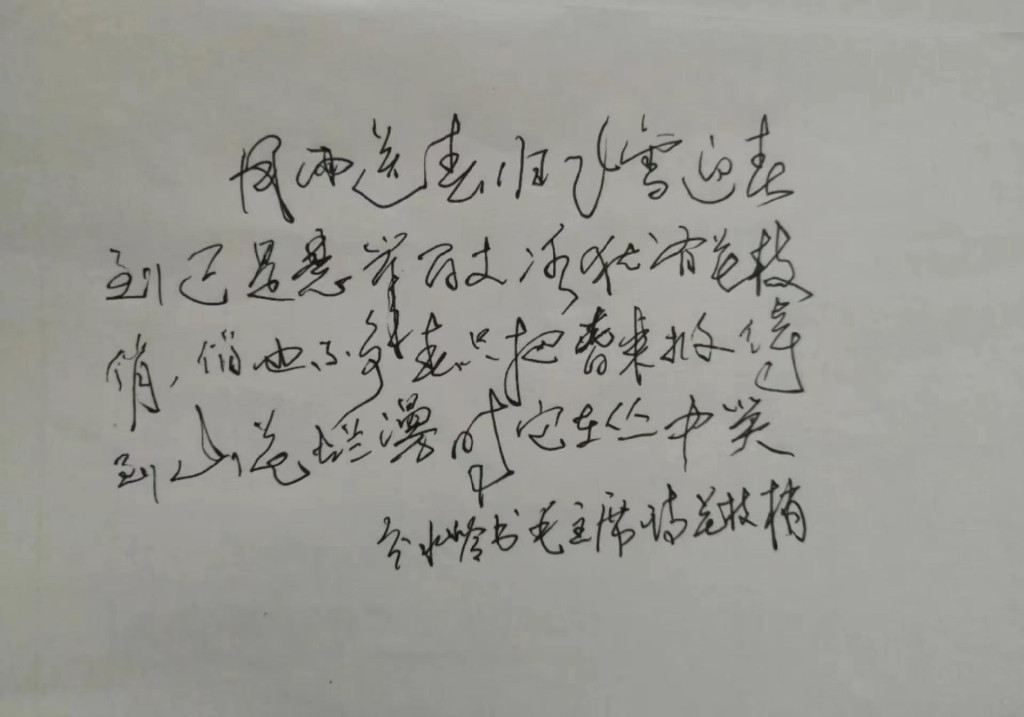 风雨送春归飞雪迎春
到已是悬岸百丈冰犹有花枝
俏，俏也不争春只把春来报待
到山花烂漫时它在丛中笑
分水岭书毛主席诗花枝梢